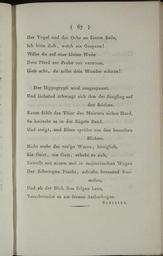 ( 67 )
Der Vogel und der Ochs an Einem Seile,
Ich bitte dich, welch ein Gespann!
Willst du auf eine kleine Weile
Dein Pferd zur Probe mir vertraun,
Gieb acht, du sollst dein Wunder schaun!
Der Hippogryph wird ausgespannt,
Und lächelnd schwingt sich ihm der Jüngling auf
den Rücken.
Kaum fühlt das Thier des Meisters sichre Hand,
So knirscht es in des Zügels Band,
Und steigt, und Blitze sprühn aus den beseelten
Blicken.
Nicht mehr das vor'ge Wesen, königlich,
Ein Geist, ein Gott, erhebt es sich,
Entrollt mit einem mal in majestätschen Wogen
Der Schwingen Pracht, schießt brausend himmelan,
Und eh der Blick ihm folgen kann,
Verschwindet es am fernen Aetherbogen.
SCHILLER.